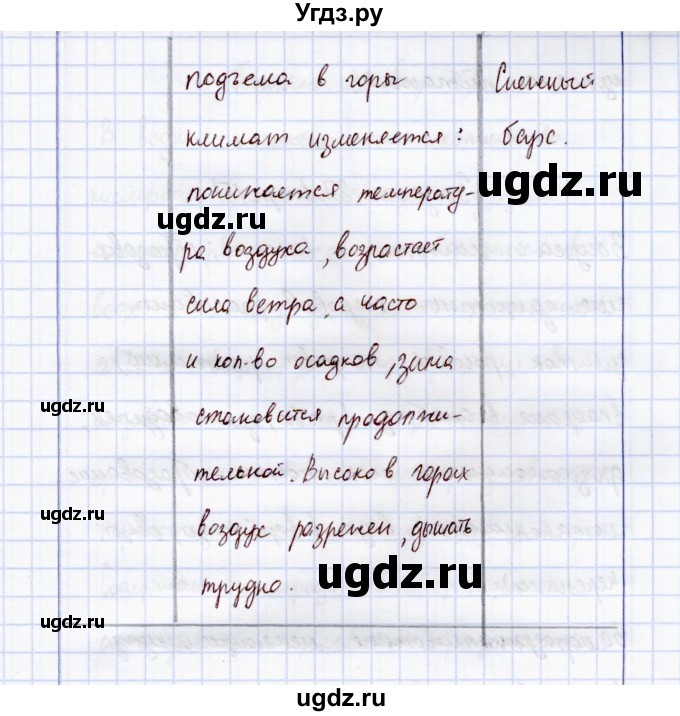 Угдз.ру
подъема в горы
климат изменяется:
понижается температу-
ра воздуха, возрастает
сила ветра, а часто
и кол-во осадков, зима
становится продолжи-
тельной. Высоко в горах
воздух разрежен, дышать
трудно.
Снежный
барс.
ugdz.ru
ugdz.ru
ugdz.ru
ugdz.ru
ugdz.ru
ugdz.ru